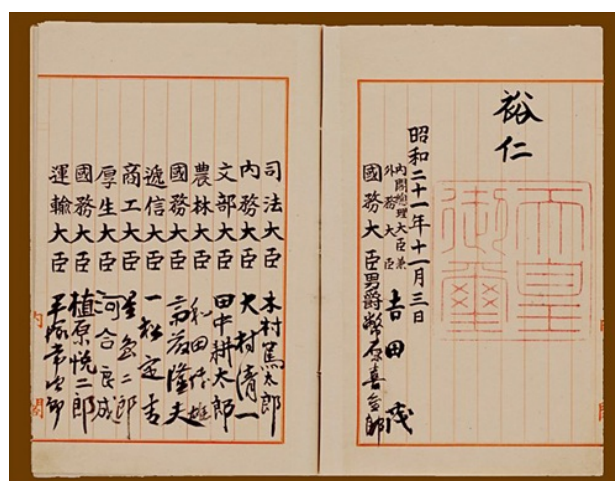 裕仁
天皇御璽
昭和二十一年十一月三日
内閣総理大臣兼
外務大臣 吉田茂
國務大臣 男爵 幣原喜重郎
司法大臣 木村篤太郎
内務大臣 大村清一
文部大臣 田中耕太郎
農林大臣 和田博雄
國務大臣 斎藤隆夫
遞信大臣 一松定吉
商工大臣 星島二郎
厚生大臣 河合良成
國務大臣 植原悦二郎
運輸大臣 平塚常次郎
内閣